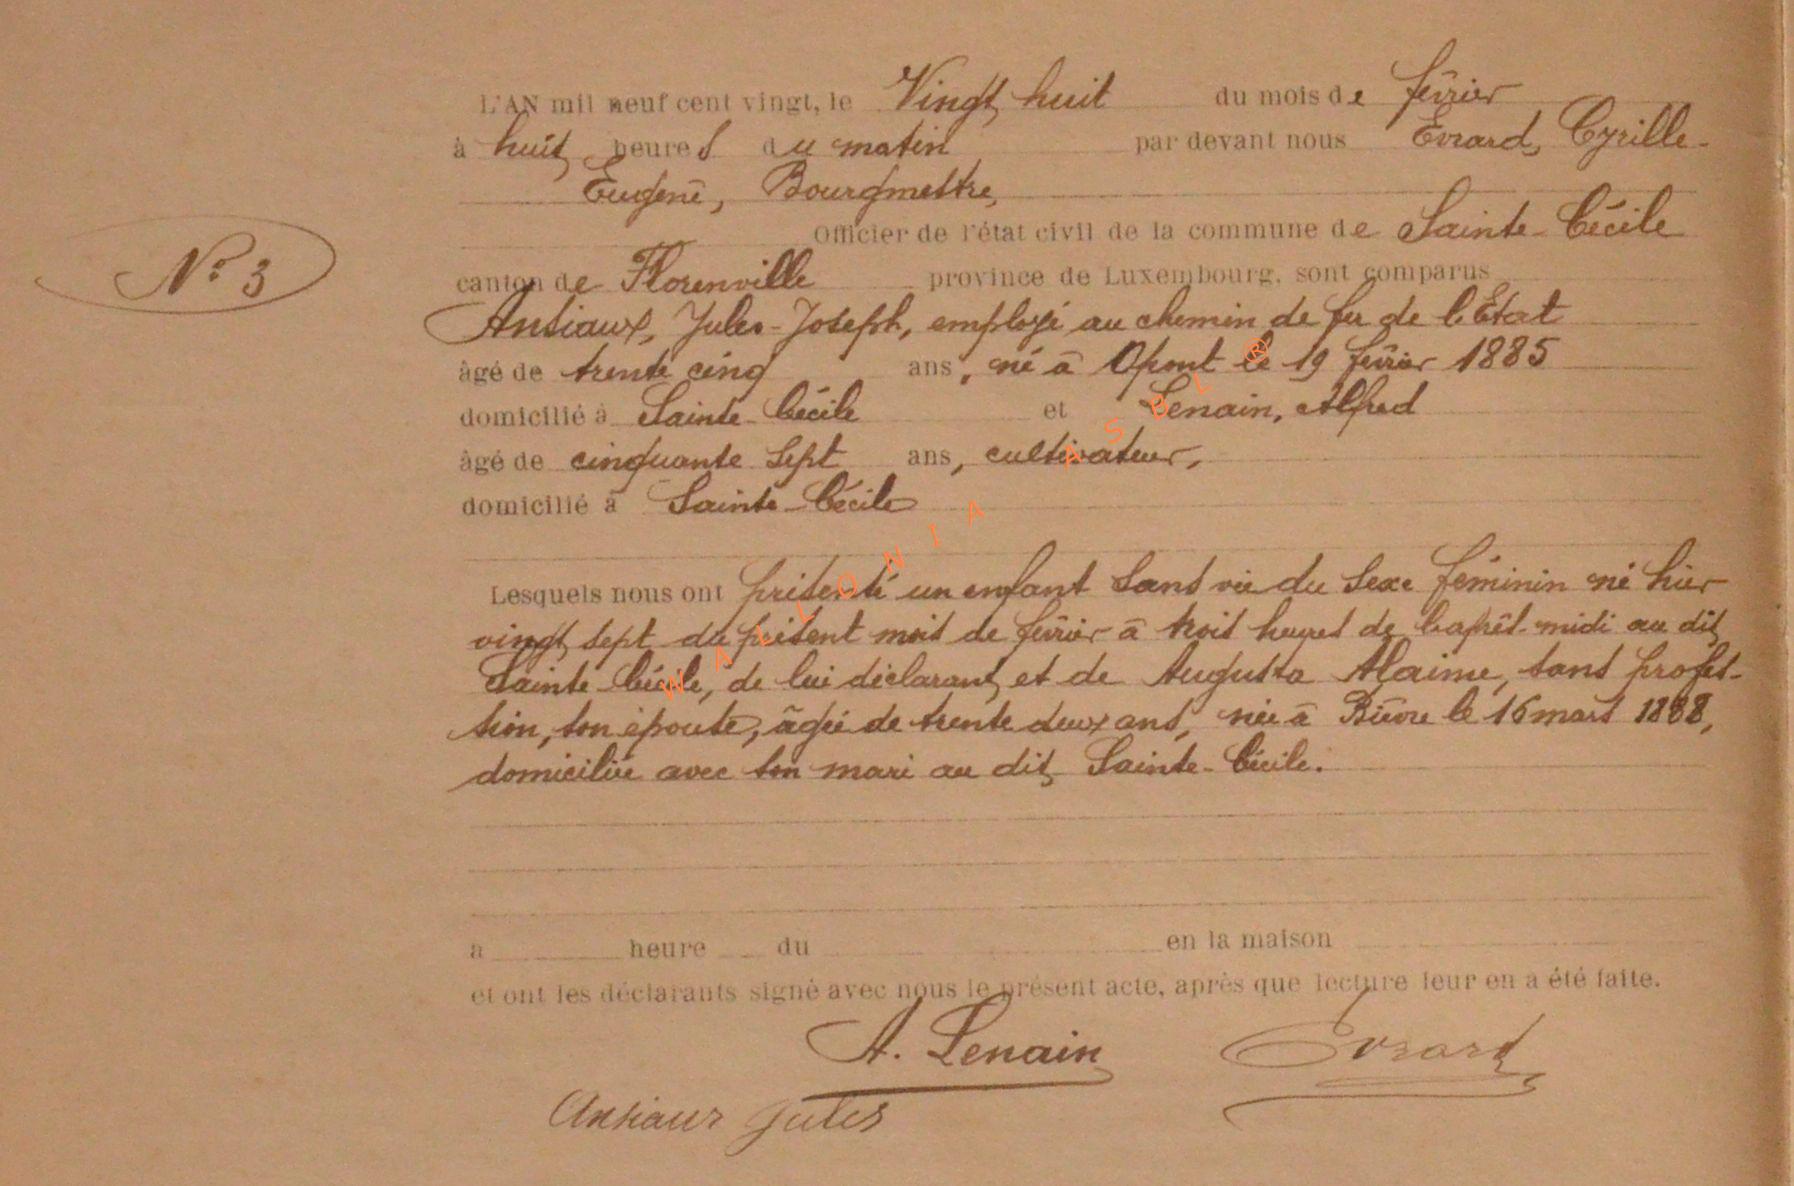 L'AN mil neuf cent vingt, le Vingt huit du mois de février
à huit heures du matin par devant nous Evrard, Cyrille-
Eugène, Bourgmestre,
Officier de l'état civil de la commune de Sainte-Cécile
N° 3
canton de Florenville province de Luxembourg, sont comparus
Ansiaux, Jules-Joseph, employé au chemin de fer de l'Etat
âgé de trente cinq ans, né à Opont le 19 février 1885
domicilié à Sainte-Cécile et Lenain, Alfred
âgé de cinquante sept ans, cultivateur,
domicilié à Sainte-Cécile
Lesquels nous ont présenté un enfant sans vie du sexe féminin né hier
vingt sept du présent mois de février à trois heures de l'après-midi au dit
Sainte-Cécile, de lui déclarant et de Augusta Alaime, sans profes-
sion, son épouse, âgée de trente deux ans, née à Bièvre le 16 mars 1888,
domiciliée avec son mari au dit Sainte-Cécile.
a heure du en la maison
et ont les déclarants signé avec nous le présent acte, après que lecture leur en a été faite.
A. Lenain Evrard
Ansiaux Jules
WALLONIA ASBL ®